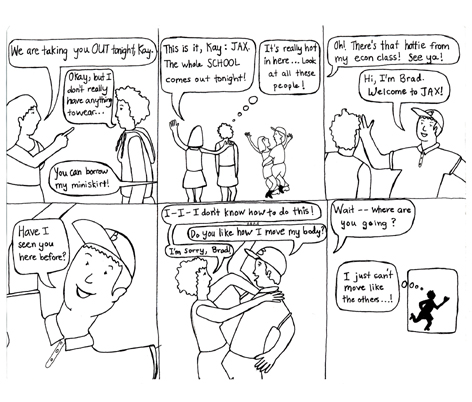 We are taking you OUT tonight, Kay.
Okay, but I
don't really
have anything
to wear...
You can borrow
my miniskirt!
This is it, Kay: JAX.
The whole SCHOOL
comes out tonight!
It's really hot
in here... Look
at all these
people!
Oh! There's that hottie from
my econ class! See ya!
Hi, I'm Brad.
Welcome to JAX!
Have I
seen you
here before?
I-I-I don't know how to do this!
Do you like how I move my body?
I'm sorry, Brad!
Wait -- where are
you going?
I just can't
move like
the others...!